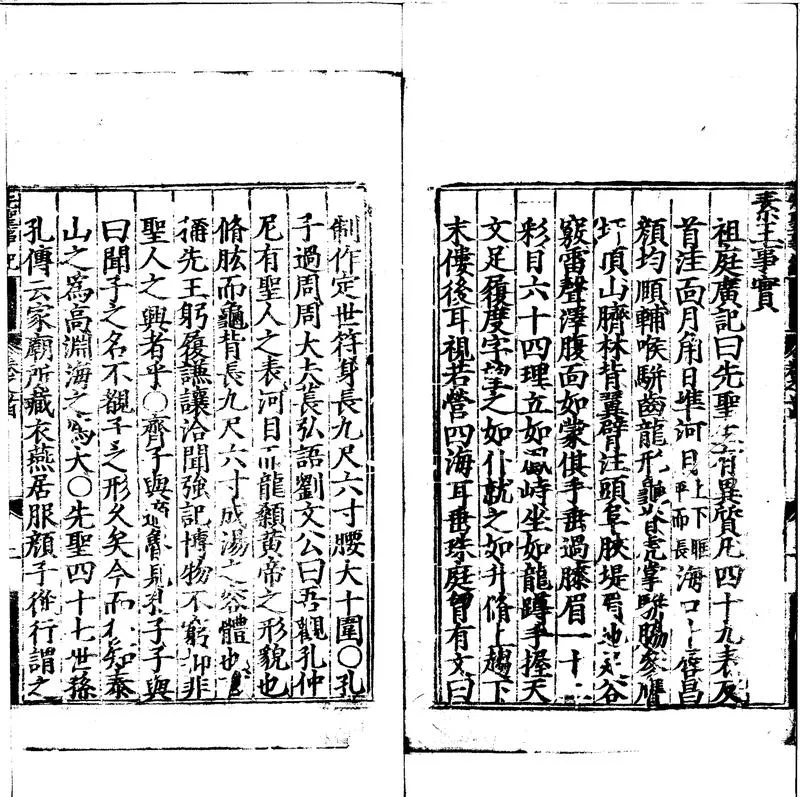 素王事實
祖庭廣記曰先聖生有異質凡四十九表反
首洼面月角日準河目上下匡平而長海口斗唇昌
顏均頤輔喉駢齒龍形龜脊虎掌駢脇參膺
圩頂山臍林背翼臂注頭阜脥堤眉地足谷
竅雷聲澤腹面如蒙倛手垂過膝眉一十二
彩目六十四理立如鳳峙坐如龍蹲手握天
文足履度字望之如仆就之如升脩上趨下
末僂後耳視若營四海耳垂珠庭胷有文曰
制作定世符身長九尺六寸腰大十圍○孔
子過周周大夫萇弘語劉文公曰吾觀孔仲
尼有聖人之表河目而龍顙黃帝之形貌也
脩肱而龜背長九尺六寸成湯之容體也
稱先王躬履謙讓洽聞強記博物不窮抑非
聖人之興者乎○齊子與適魯見孔子子與
曰聞子之名不覩子之形久矣今而後知泰
山之為高淵海之為大○先聖四十七世孫
孔傳云家廟所藏衣燕居服顏子從行謂之